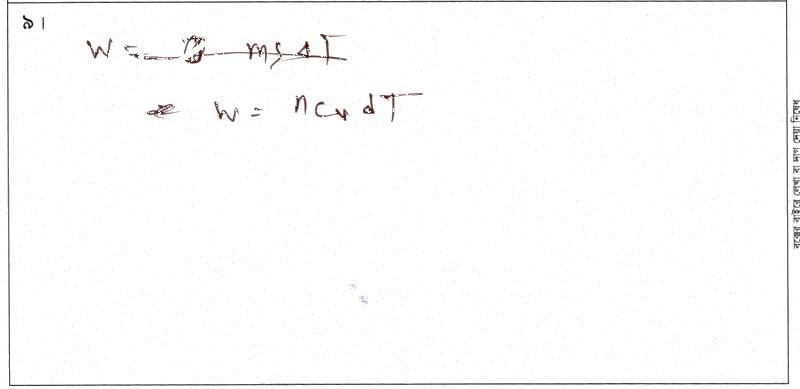 ৯।
W = msΔT
W = nCv dT
বক্সের বাইরে লেখা বা দাগ দেয়া নিষেধ